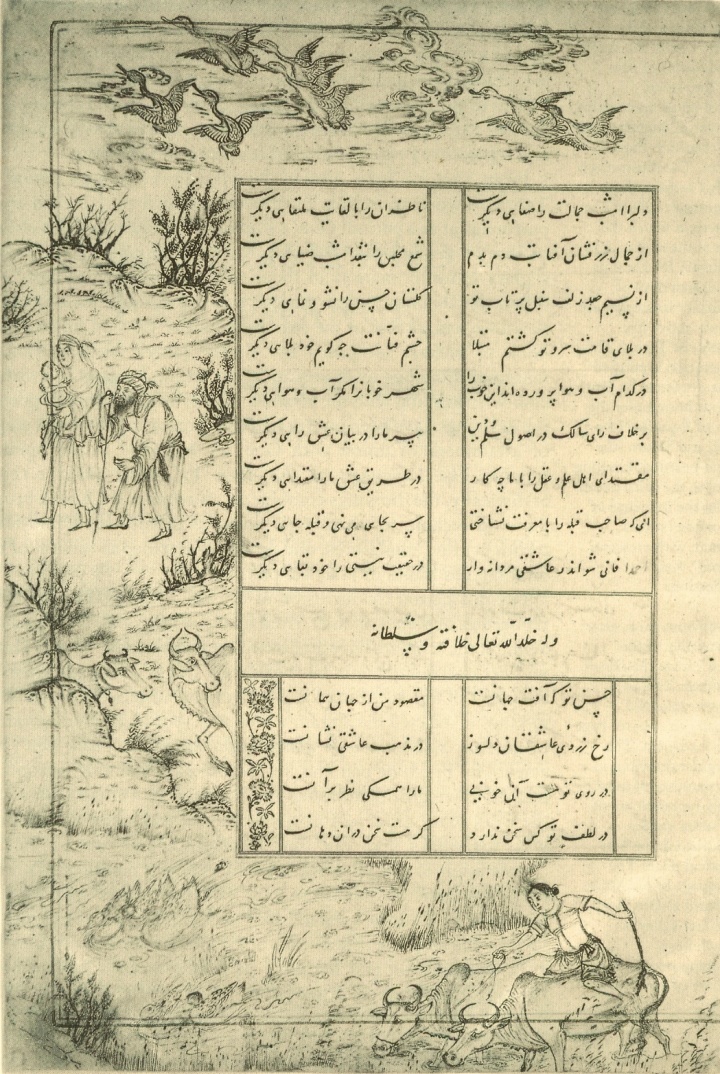 دلبرا امشب جمالت را صفایی دیگرست
ناظران را با لقایت ملتقایی دیگرست
از جمال زرفشان آفتابت دم بدم
شمع مجلس را بتقد امشب ضیای دیگرست
از نسیم جعد زلف سنبل پرتاب تو
گلستان چین را نشو و نمای دیگرست
در بلای قامت سرو تو گشتم مبتلا
چشم فتانت چه گویم خود بلای دیگرست
در کدام آب و هوا پرورده‌اند این خوب را
شهر خوبانرا مگر آب و هوایی دیگرست
بر خلاف رای سالک در اصول علم و دین
پیر ما را در بیان عشق رایی دیگرست
مقتدای اهل علم و عقل را با ما چه کار
در طریق عشق ما را مقتدایی دیگرست
ای که صاحب قبله را با معرفت نشناختی
سر بجای می نهی و قبله جای دیگرست
احمدا فانی شو اندر عاشقی مردانه وار
در حقیقت نیستی را خود بقایی دیگرست
وله خلد الله تعالی خلافته و سلطانه
حسن تو که آفت جهانست
مقصود من از جهان همانست
رخ زردی عاشقان دلسوز
در مذهب عاشقی نشانست
در روی تو هست آیی خوبی
ما را همگی نظر بر آنست
در لطف تو کس سخن ندارد
گر هست سخن در آن دهانست